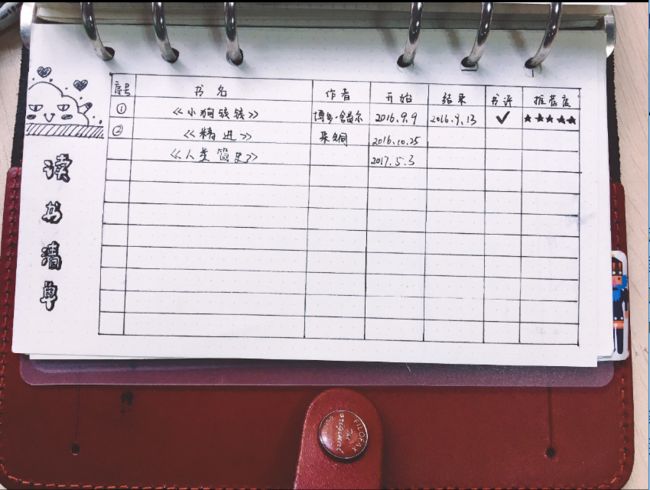 读书清单
序号 书名 作者 开始 结果 书评 推荐度
① 《小狗钱钱》 博多·舍费尔 2016.9.9 2016.9.13 ✓ ★★★★★
② 《精进》 采铜 2016.10.25
《人类简史》 2017.5.3
FILOFAX
The
original